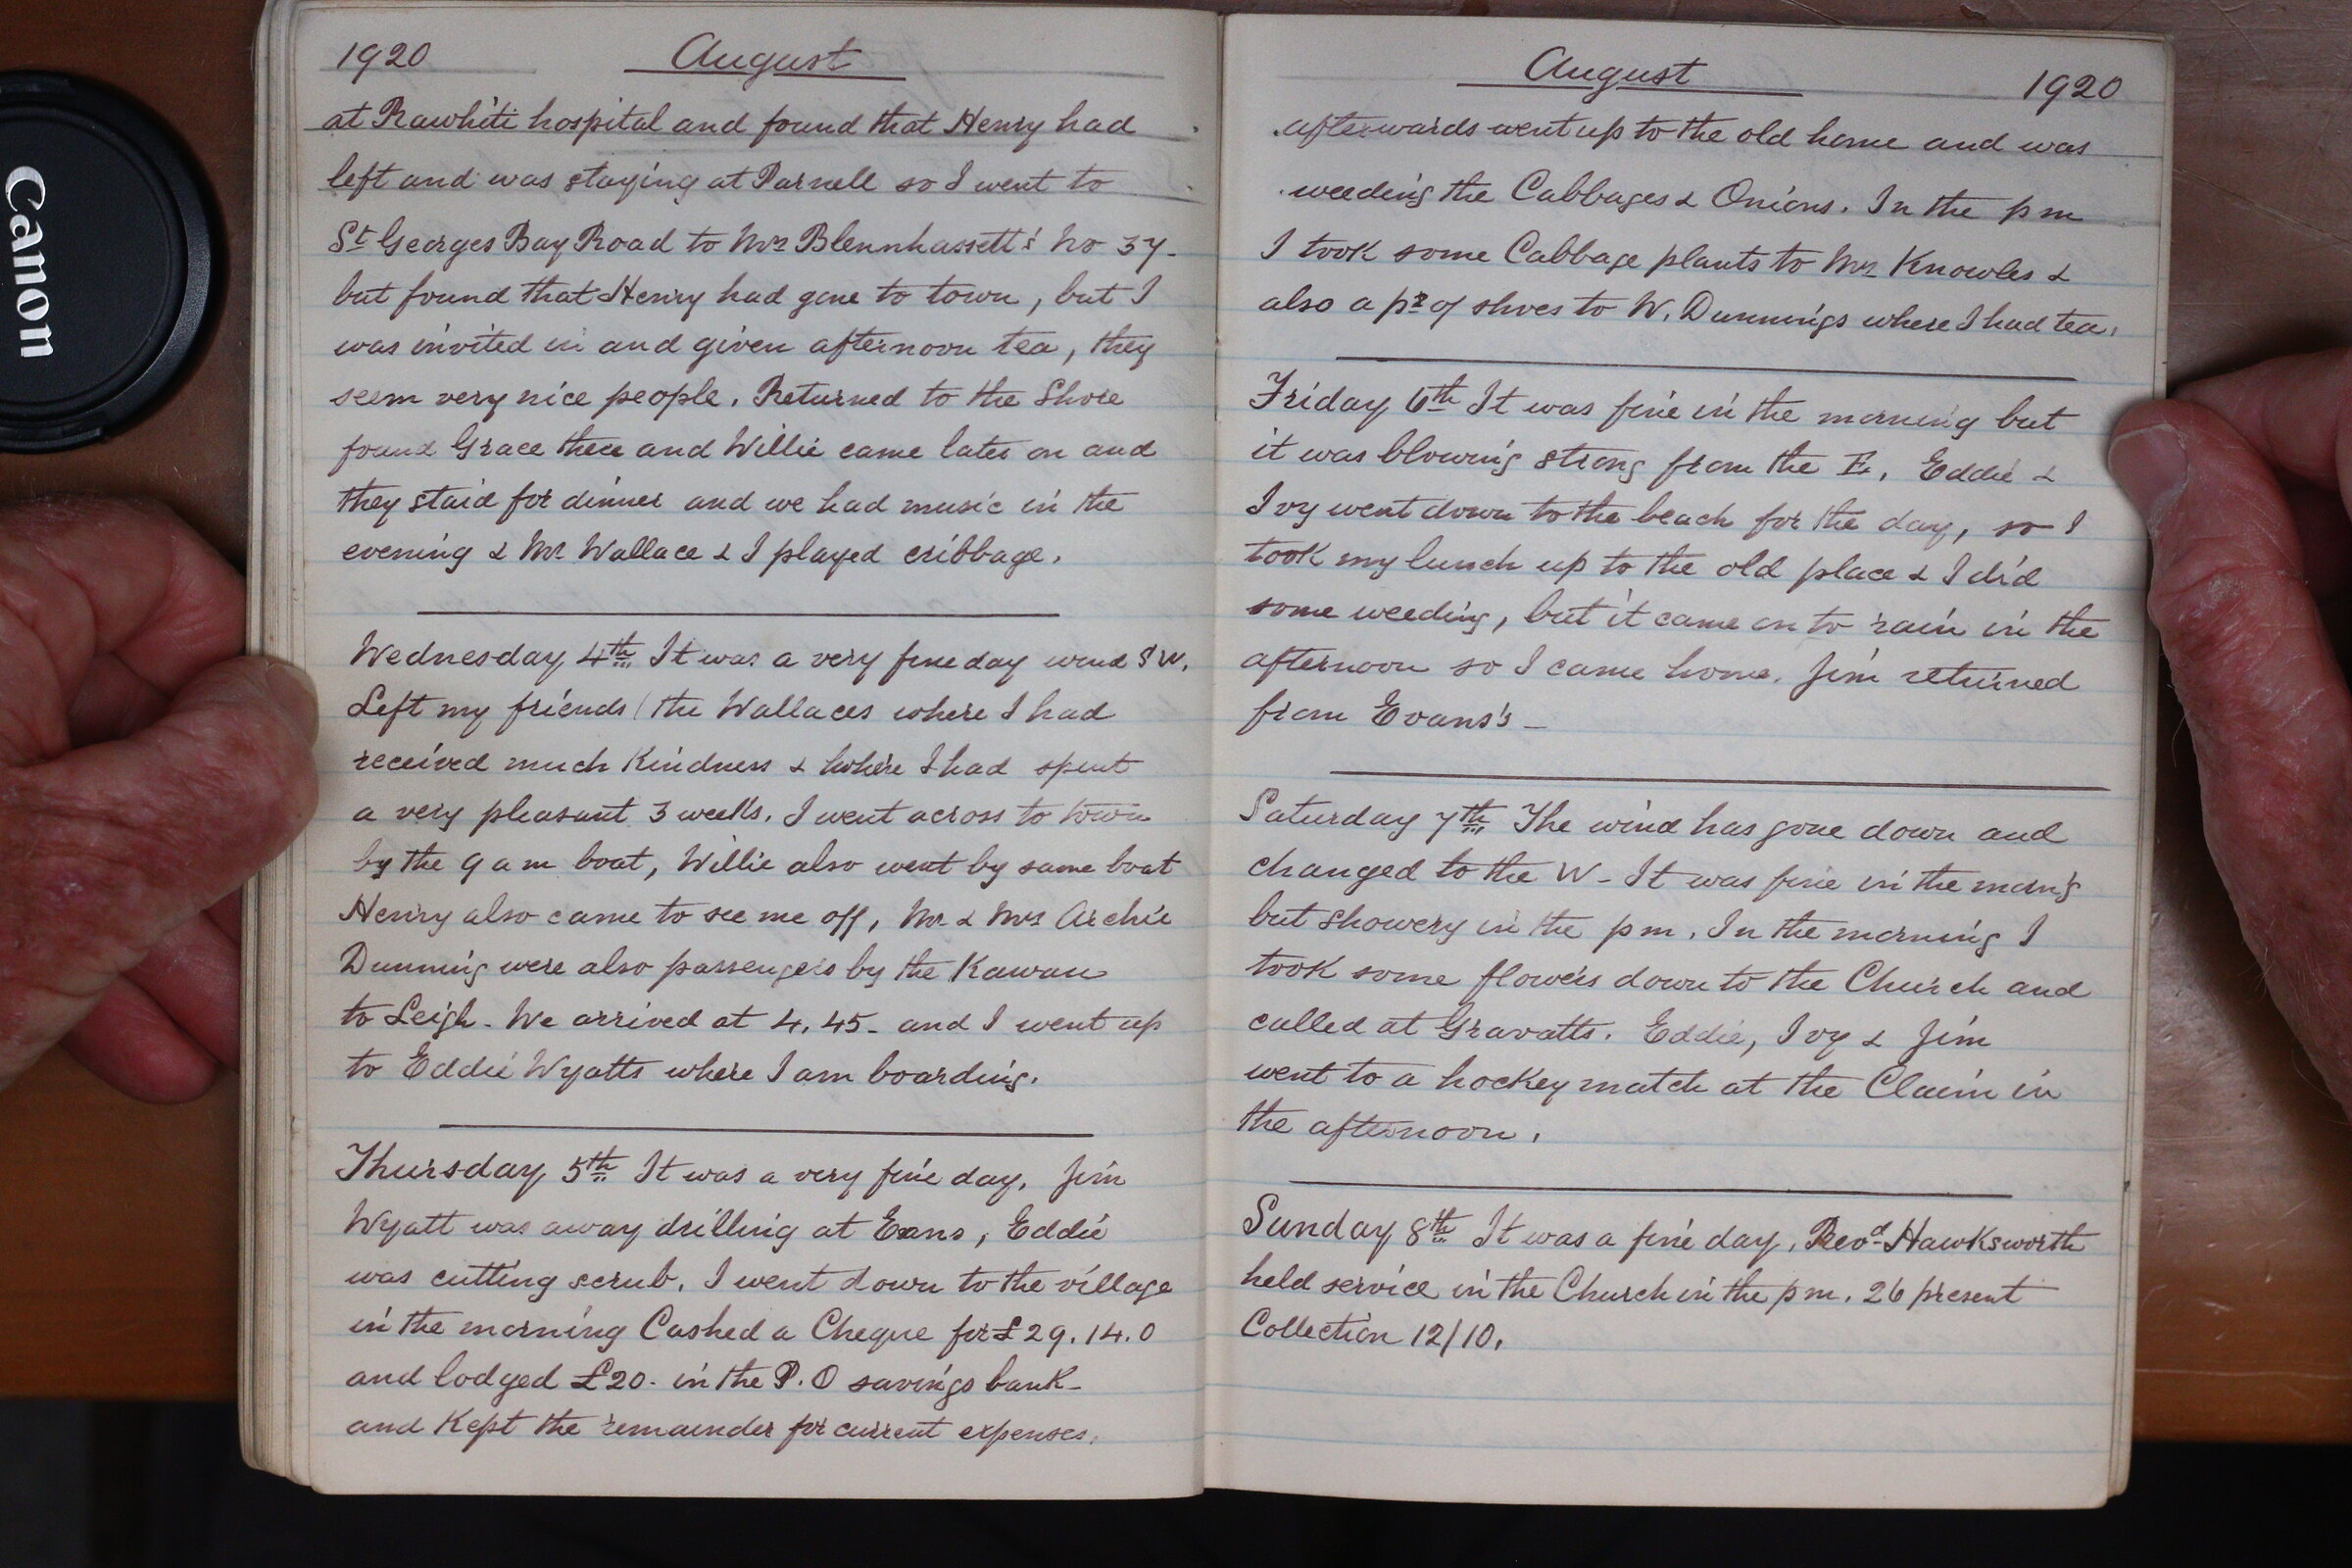 Canon
1920 August
at Rawhiti hospital and found that Henry had
left and was staying at Parnell so I went to
St Georges Bay Road to Mrs Blennhassett's No 37-
but found that Henry had gone to town, but I
was invited in and given afternoon tea, they
seem very nice people. Returned to the Shore
found Grace there and Willie came later on and
they staid for dinner and we had music in the
evening & Mr Wallace & I played cribbage.
Wednesday 4th It was a very fine day wind SW.
Left my friends (the Wallaces where I had
received much Kindness & where I had spent
a very pleasant 3 weeks. I went across to town
by the 9 am boat, Willie also went by same boat
Henry also came to see me off, Mr & Mrs Archie
Dunning were also passengers by the Kawau
to Leigh - We arrived at 4.45 - and I went up
to Eddie Wyatts where I am boarding.
Thursday 5th It was a very fine day, Jim
Wyatt was away drilling at Evans, Eddie
was cutting scrub. I went down to the village
in the morning Cashed a Cheque for £29.14.0
and lodged £20 - in the P.O savings bank -
and Kept the remainder for current expenses.
August 1920
afterwards went up to the old home and was
weeding the Cabbages & Onions. In the pm
I took some Cabbage plants to Mrs Knowles &
also a pr of shoes to W. Dunnings where I had tea.
Friday 6th It was fine in the morning but
it was blowing strong from the E. Eddie &
Ivy went down to the beach for the day, so I
took my lunch up to the old place & I did
some weeding, but it came on to rain in the
afternoon so I came home. Jim returned
from Evans's -
Saturday 7th The wind has gone down and
changed to the W - It was fine in the morng
but showery in the pm. In the morning I
took some flowers down to the Church and
called at Gravatts. Eddie, Ivy & Jim
went to a hockey match at the Claim in
the afternoon.
Sunday 8th It was a fine day, Revd Hawksworth
held service in the Church in the pm. 26 present
Collection 12/10.